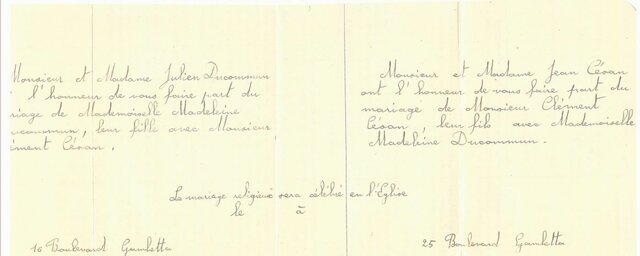 Monsieur et Madame Julien Ducommun
l'honneur de vous faire part du
riage de Mademoiselle Madeleine
ucommun, leur fille avec Monsieur
ément Céran.
Monsieur et Madame Jean Céran
ont l'honneur de vous faire part du
mariage de Monsieur Clément
Céran, leur fils avec Mademoiselle
Madeleine Ducommun.
Le mariage religieux sera célébré en l'Eglise
le à
16 Boulevard Gambetta
25 Boulevard Gambetta